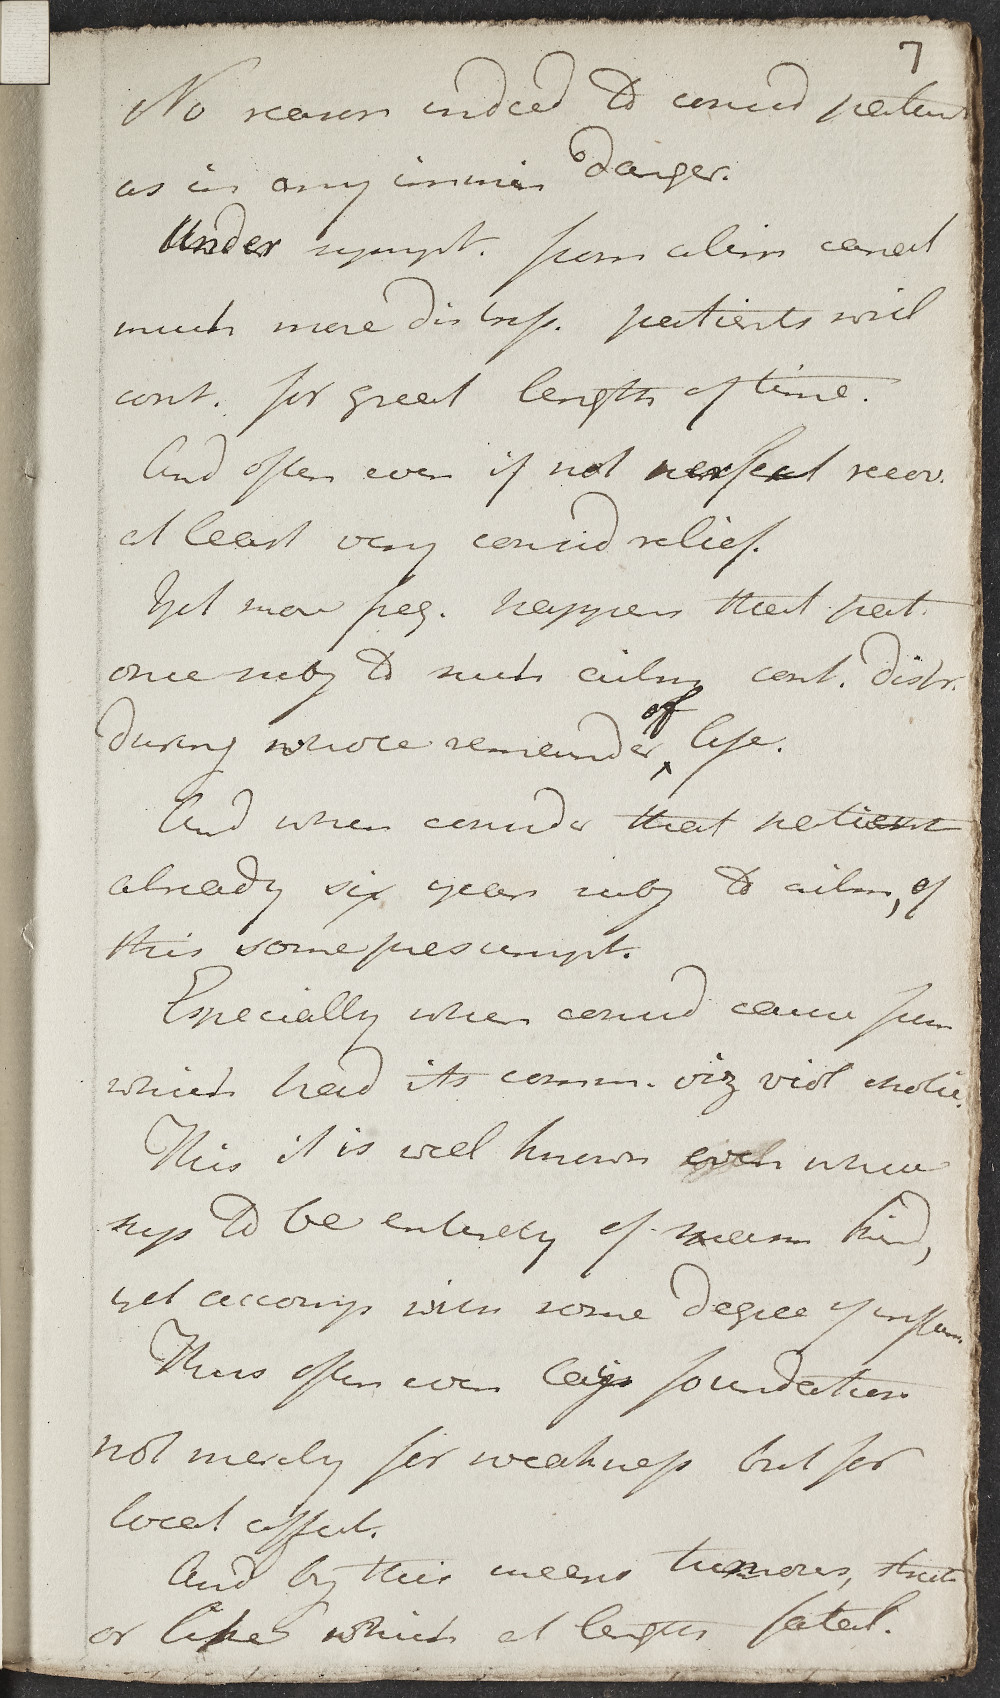 7
No reason indeed to consid patient
as in any immin danger.
Under sympt. from alim canal
much more distress. patients will
cont. for great length of time.
And often even if not perfect recov.
at least very consid relief.
Yet more freq. happens that pat.
once subj to such ailm cont. distr.
during whole remainder of life.
And when consider that patient
already six years subj to ailm, of
this some presumpt.
Especially when consid cause from
which had its comm. viz viol cholic.
This it is well known even when
supp to be entirely of spasm kind,
yet accomp with some degree of inflam.
Thus often even lays foundation
not merely for weakness but for
local affect.
And by this means tumours, strict
or like which at length fatal.